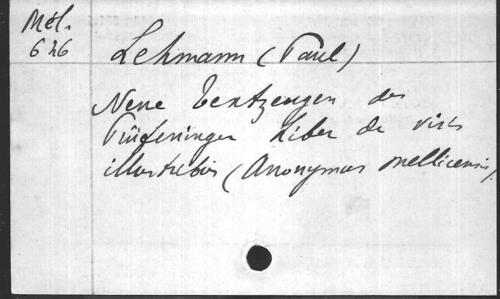 Mél.
626
Lehmann (Paul)
Neue Textzeugen des
Prüfeninger Liber de viris
illustribus (Anonymus mellicensis).